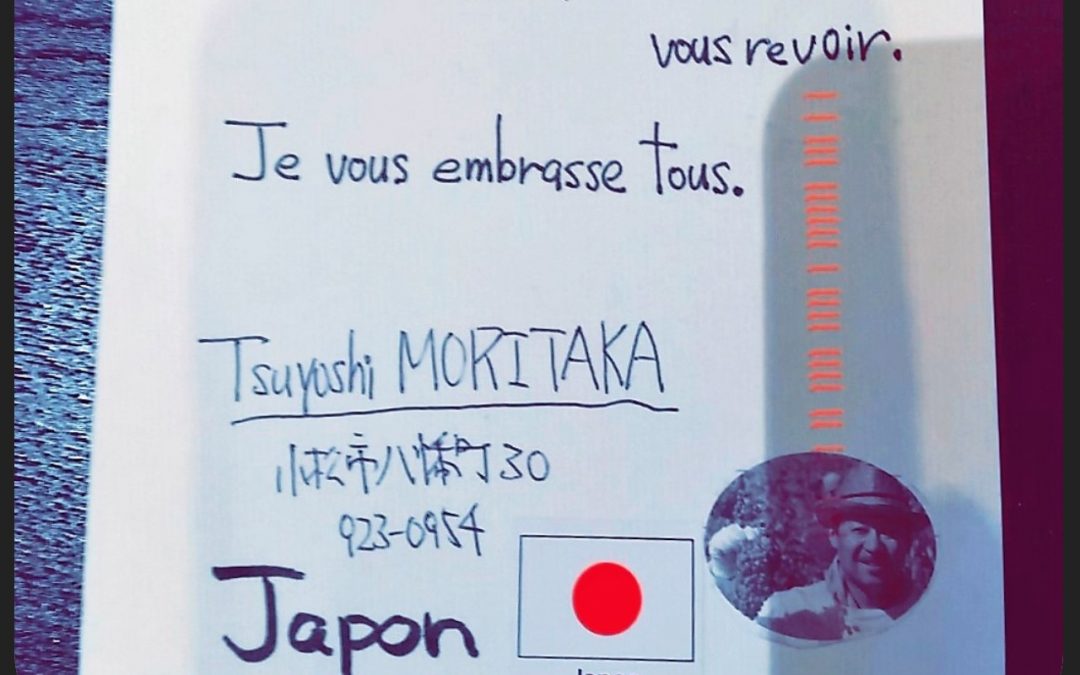 vous revoir.
Je vous embrasse tous.
Tsuyoshi MORITAKA
小松市八幡町30
923-0954
Japon